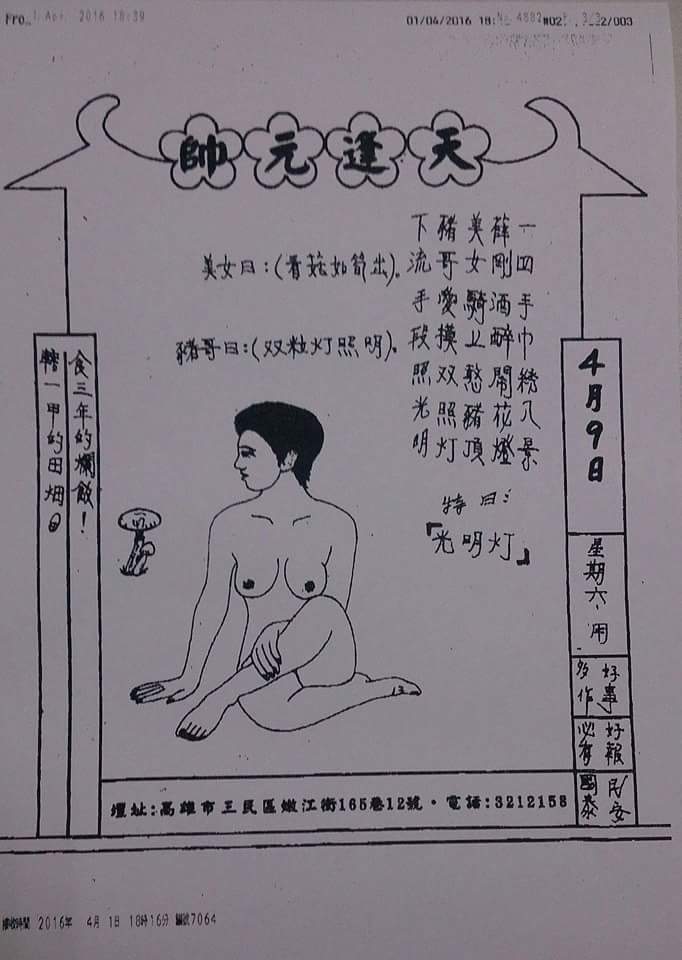 1 Apr. 2016 18:39
01/04/2016 18: No. 4882 P. 3/3 2/003
天逢元帥
一四手巾綉八景
薛剛酒醉鬧花燈
美女騎上憨豬頂
豬哥愛摸双照灯
下流手段照光明
特曰:
「光明灯」
美女曰:(香菇如筍出)。
豬哥曰:(双粒灯照明)。
4月9日
星期六、用
好事
多作
好報
必有
民安
國泰
食三年的爛飯!
一甲的田畑
壇址:高雄市三民區嫩江街165巷12號・電話:3212158
接收時間 2016年 4月 1日 18時16分 編號7064